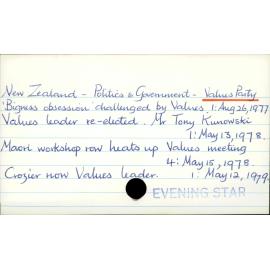 New Zealand - Politics & Government - Values Party
'Bigness obsession' challenged by Values. 1: Aug 26, 1977
Values leader re-elected. Mr Tony Kunowski
1: May 13, 1978.
Maori workshop row heats up Values meeting
4: May 15, 1978.
Crozier now Values leader. 1: May 12, 1979.
EVENING STAR